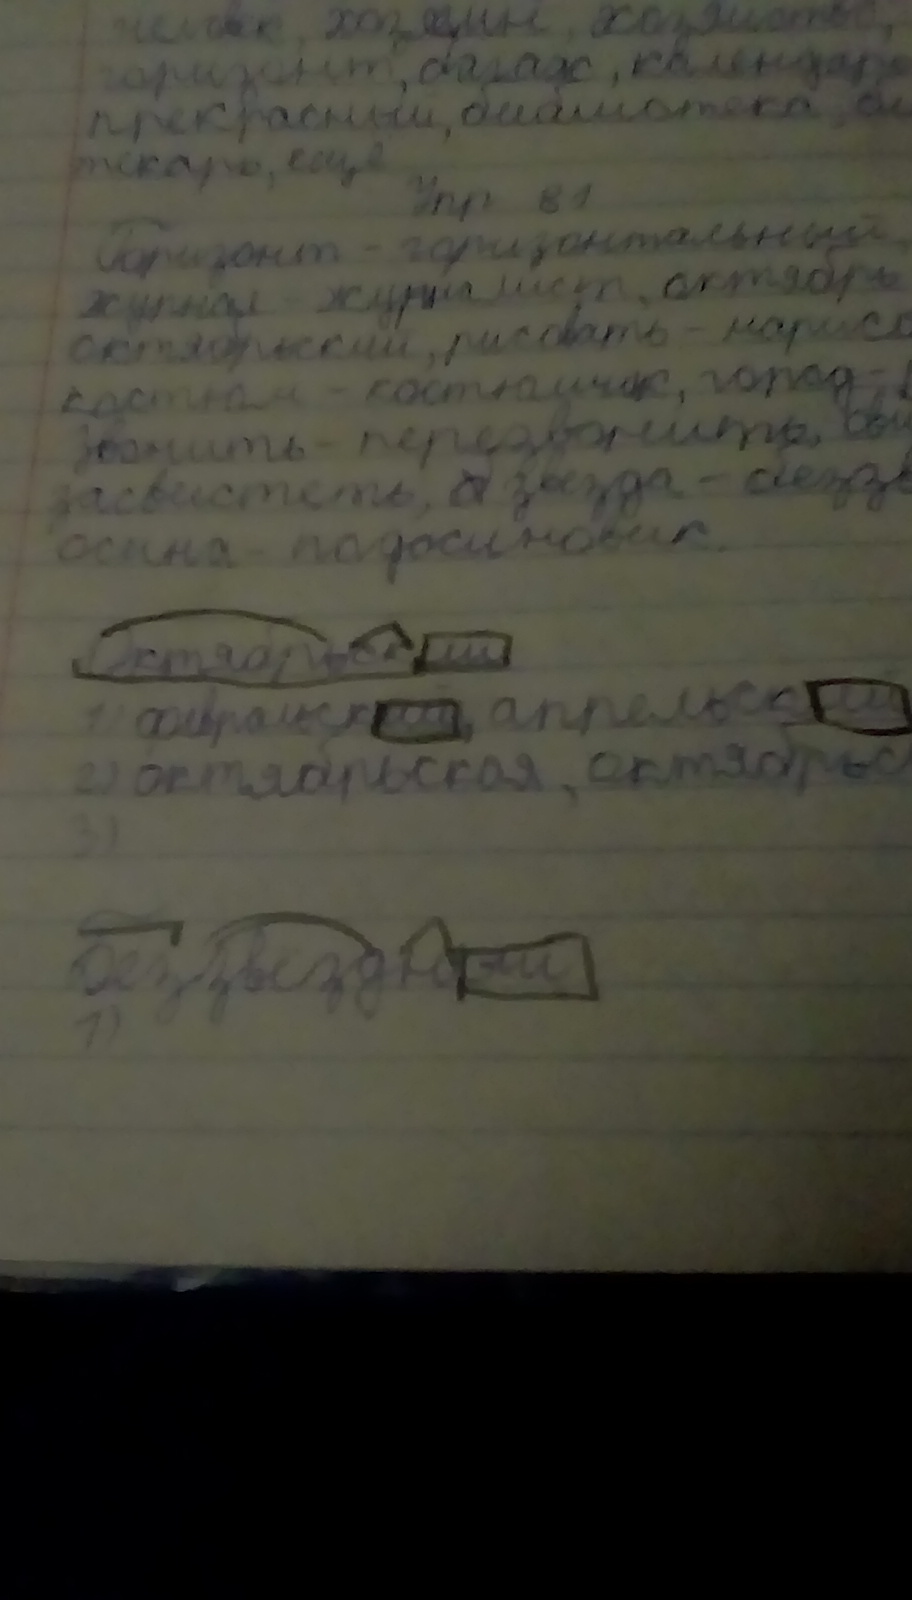 человек, хозяин, хозяйство,
горизонт, багаж, календарь
прекрасный, библиотека, би
текарь, ещё
Упр 81
Горизонт - горизонтальный,
журнал - журналист, октябрь
октябрьский, рисовать - нарисо
костюм - костюмчик, город -
звонить - перезвонить,
засвистеть, звезда - беззв
осина - подосиновик.
Октябрьский
1) февральский, апрельский
2) октябрьская, октябрьс
3)
беззвездный
1)